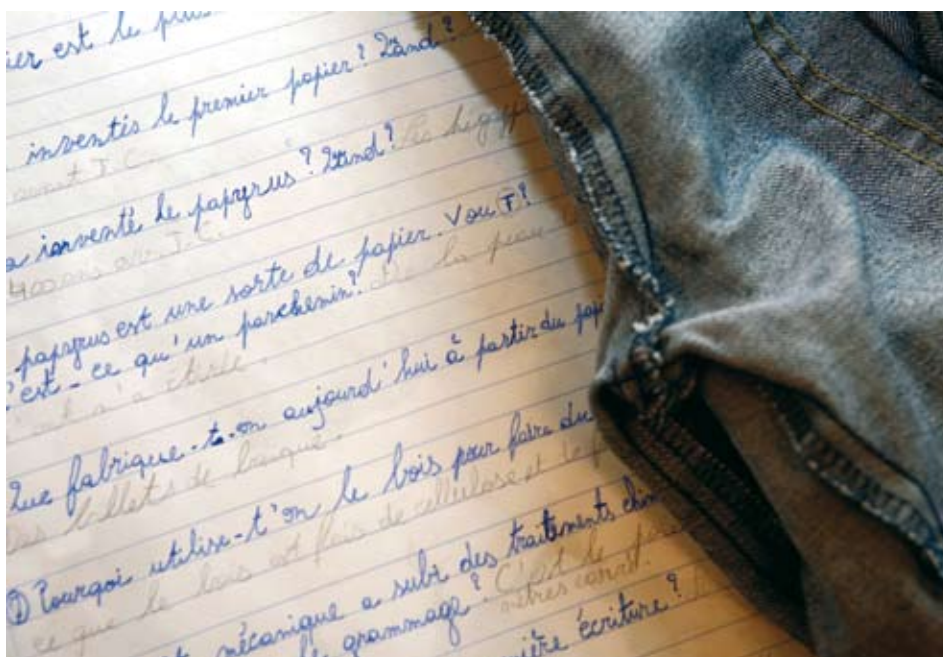 ier est le plus
inventés le premier papier? Quand?
avant J.C.
a inventé le papyrus? Quand?
400 ans av. J.C.
papyrus est une sorte de papier. V ou F?
'est-ce qu'un parchemin? De la peau
Que fabrique-t-on aujourd'hui à partir du pap
billets de banque.
Pourqoi utilise-t'on le bois pour faire du
ce que le bois est fais de cellulose et le
mécanique a subi des traitements chim
le grammage? C'est le
mètres carré.
ière écriture?